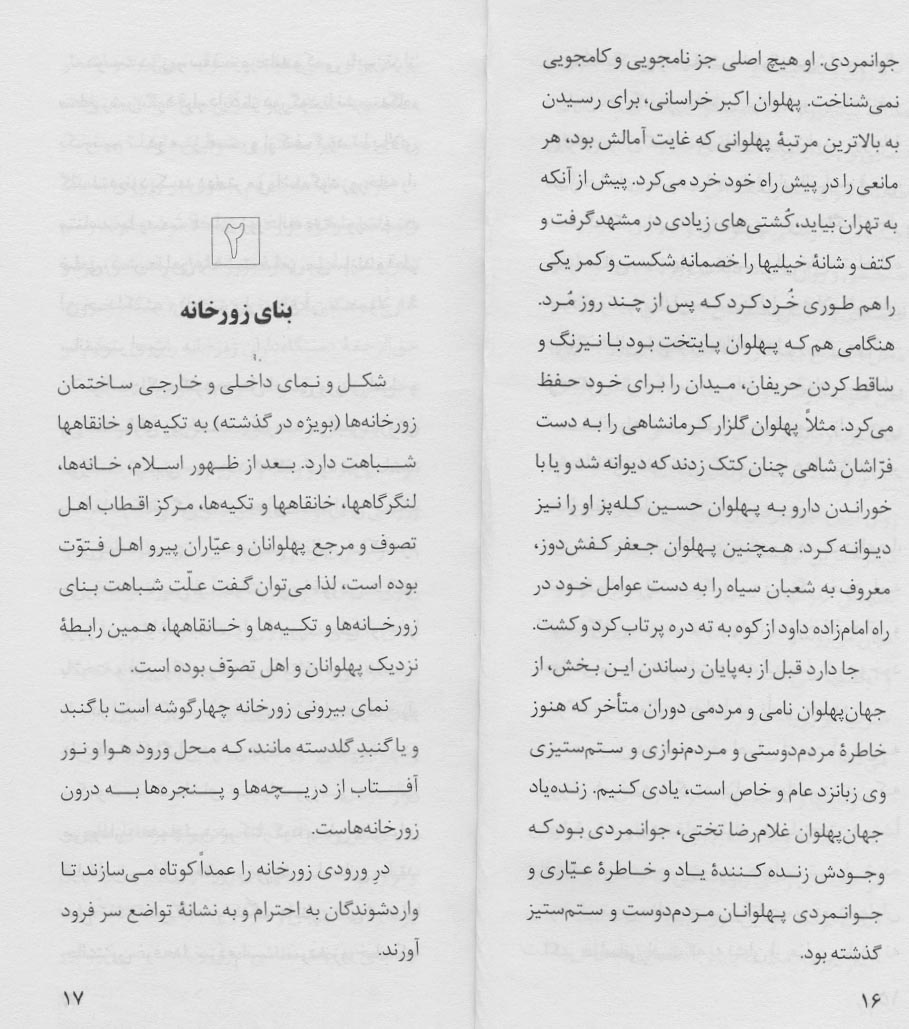 جوانمردی. او هیچ اصلی جز نامجویی و کامجویی
نمی‌شناخت. پهلوان اکبر خراسانی، برای رسیدن
به بالاترین مرتبهٔ پهلوانی که غایت آمالش بود، هر
مانعی را در پیش راه خود خرد می‌کرد. پیش از آنکه
به تهران بیاید، کُشتی‌های زیادی در مشهد گرفت و
کتف و شانهٔ خیلیها را خصمانه شکست و کمر یکی
را هم طوری خُرد کرد که پس از چند روز مُرد.
هنگامی هم که پهلوان پایتخت بود با نیرنگ و
ساقط کردن حریفان، میدان را برای خود حفظ
می‌کرد. مثلاً پهلوان گلزار کرمانشاهی را به دست
فرّاشان شاهی چنان کتک زدند که دیوانه شد و یا با
خوراندن دارو به پهلوان حسین کله‌پز او را نیز
دیوانه کرد. همچنین پهلوان جعفر کفش‌دوز،
معروف به شعبان سیاه را به دست عوامل خود در
راه امام‌زاده داود از کوه به ته دره پرتاب کرد و کشت.
جا دارد قبل از به‌پایان رساندن این بخش، از
جهان‌پهلوان نامی و مردمی دوران متأخر که هنوز
خاطرهٔ مردم‌دوستی و مردم‌نوازی و ستم‌ستیزی
وی زبانزد عام و خاص است، یادی کنیم. زنده‌یاد
جهان‌پهلوان غلام‌رضا تختی، جوانمردی بود که
وجودش زنده‌کنندهٔ یاد و خاطرهٔ عیّاری و
جوانمردی پهلوانان مردم‌دوست و ستم‌ستیز
گذشته بود.
۱۶
۲
بنای زورخانه
شکل و نمای داخلی و خارجی ساختمان
زورخانه‌ها (بویژه در گذشته) به تکیه‌ها و خانقاهها
شباهت دارد. بعد از ظهور اسلام، خانه‌ها،
لنگرگاهها، خانقاهها و تکیه‌ها، مرکز اقطاب اهل
تصوف و مرجع پهلوانان و عیّاران پیرو اهل فتوّت
بوده است، لذا می‌توان گفت علّت شباهت بنای
زورخانه‌ها و تکیه‌ها و خانقاهها، همین رابطهٔ
نزدیک پهلوانان و اهل تصوّف بوده است.
نمای بیرونی زورخانه چهارگوشه است با گنبد
و یا گنبدِ گلدسته مانند، که محل ورود هوا و نور
آفتاب از دریچه‌ها و پنجره‌ها به درون
زورخانه‌هاست.
درِ ورودی زورخانه را عمداً کوتاه می‌سازند تا
واردشوندگان به احترام و به نشانهٔ تواضع سر فرود
آورند.
۱۷